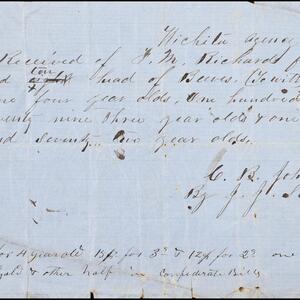 Wichita agency
Received of F. M. Richards
ton
d head of Beeves. (To wit
four year olds, one hundred
nine three year olds & one
d seventy two year olds.
C. B. Joh
By J. J.
for 4 year old B for 3s & 12 for 2s one
gold & other half in Confederate Bills